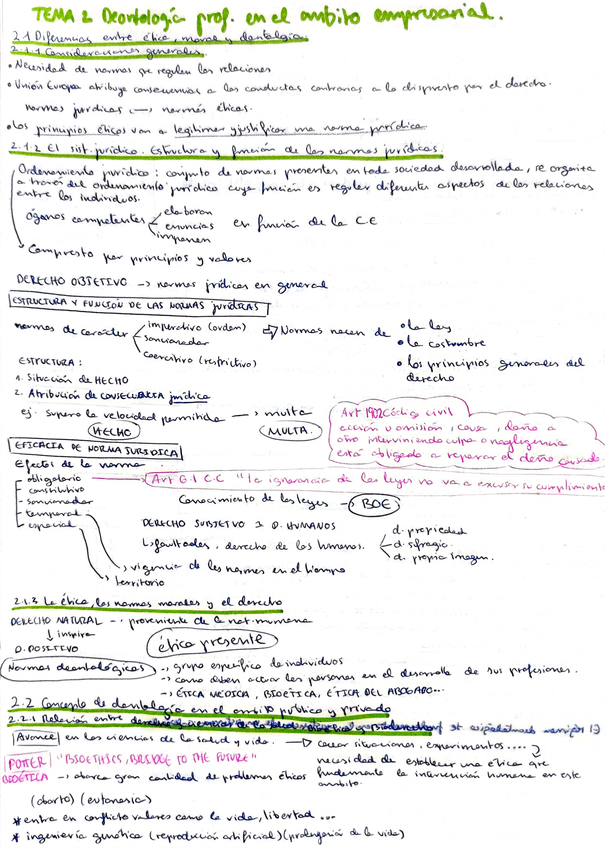 TEMA 2 Deontología prof. en el ambito empresarial.
2.1 Diferencias entre ética, moral y deontología
2.1.1 Consideraciones generales.
• Necesidad de normas que regulen las relaciones
• Unión Europa atribuye consecuencias a las conductas contrarias a lo dispuesto por el derecho.
normas jurídicas normas éticas.
• Los principios éticos van a legitimar y justificar una norma jurídica
2.1.2 El sist. jurídico. Estructura y función de las normas jurídicas.
Ordenamiento jurídico: conjunto de normas presentes en toda sociedad desarrollada, se organiza
a través del ordenamiento jurídico cuya función es regular diferentes aspectos de las relaciones
entre los individuos.
órganos competentes elaboran
enuncias en función de la C.E
imponen
Compuesto por principios y valores
DERECHO OBJETIVO -> normas jrídicas en general
ESTRUCTURA Y FUNCIÓN DE LAS NORMAS jurídicas
normas de carácter imperativo (orden) Normas nacen de • la ley
sancionador • la costumbre
coercitivo (restrictivo) • los principios generales del
derecho
ESTRUCTURA:
1. Situación de HECHO
2. Atribución de CONSECUENCIA jurídica
ej. supero la velocidad permitida -> multa
HECHO MULTA.
Art 1902 Código civil
acción u omisión, causa, daño a
otro interviniendo culpa o negligencia
está obligado a reparar el daño causado.
EFICACIA DE NORMA JURIDICA
Efectos de la norma
obligatorio Art 6.1 C.C "la ignorancia de las leyes no va a excusar su cumplimiento
constitutivo
sancionador Conocimiento de las leyes -> BOE
temporal
espacial
DERECHO SUBJETIVO D. HUMANOS
facultades, derecho de los humanos. d. propiedad
d. sufragio
d. propia imagen.
vigencia de las normas en el tiempo
territorio
2.1.3 La ética, las normas morales y el derecho
DERECHO NATURAL proveniente de la nat. humana
inspira
D. POSITIVO
ética presente
Normas deontológicas -> grupo específico de individuos
-> como deben actuar las personas en el desarrollo de sus profesiones.
-> ÉTICA MÉDICA, BIOÉTICA, ÉTICA DEL ABOGADO...
2.2 Concepto de deontología en el ambito publico y privado
2.2.1 Relación entre
Avance en las ciencias de la salud y vida. -> crear situaciones, experimentos....
POTTER "BIOETHICS, BRIDGE TO THE FUTURE" necesidad de establecer una ética que
BIOÉTICA -> abarca gran cantidad de problemas éticos la intervención humana en este
ambito.
(aborto) (eutanasia)
* entra en conflicto valores como la vida, libertad...
* ingeniería genética (reproducción artificial) (prolongación de la vida)